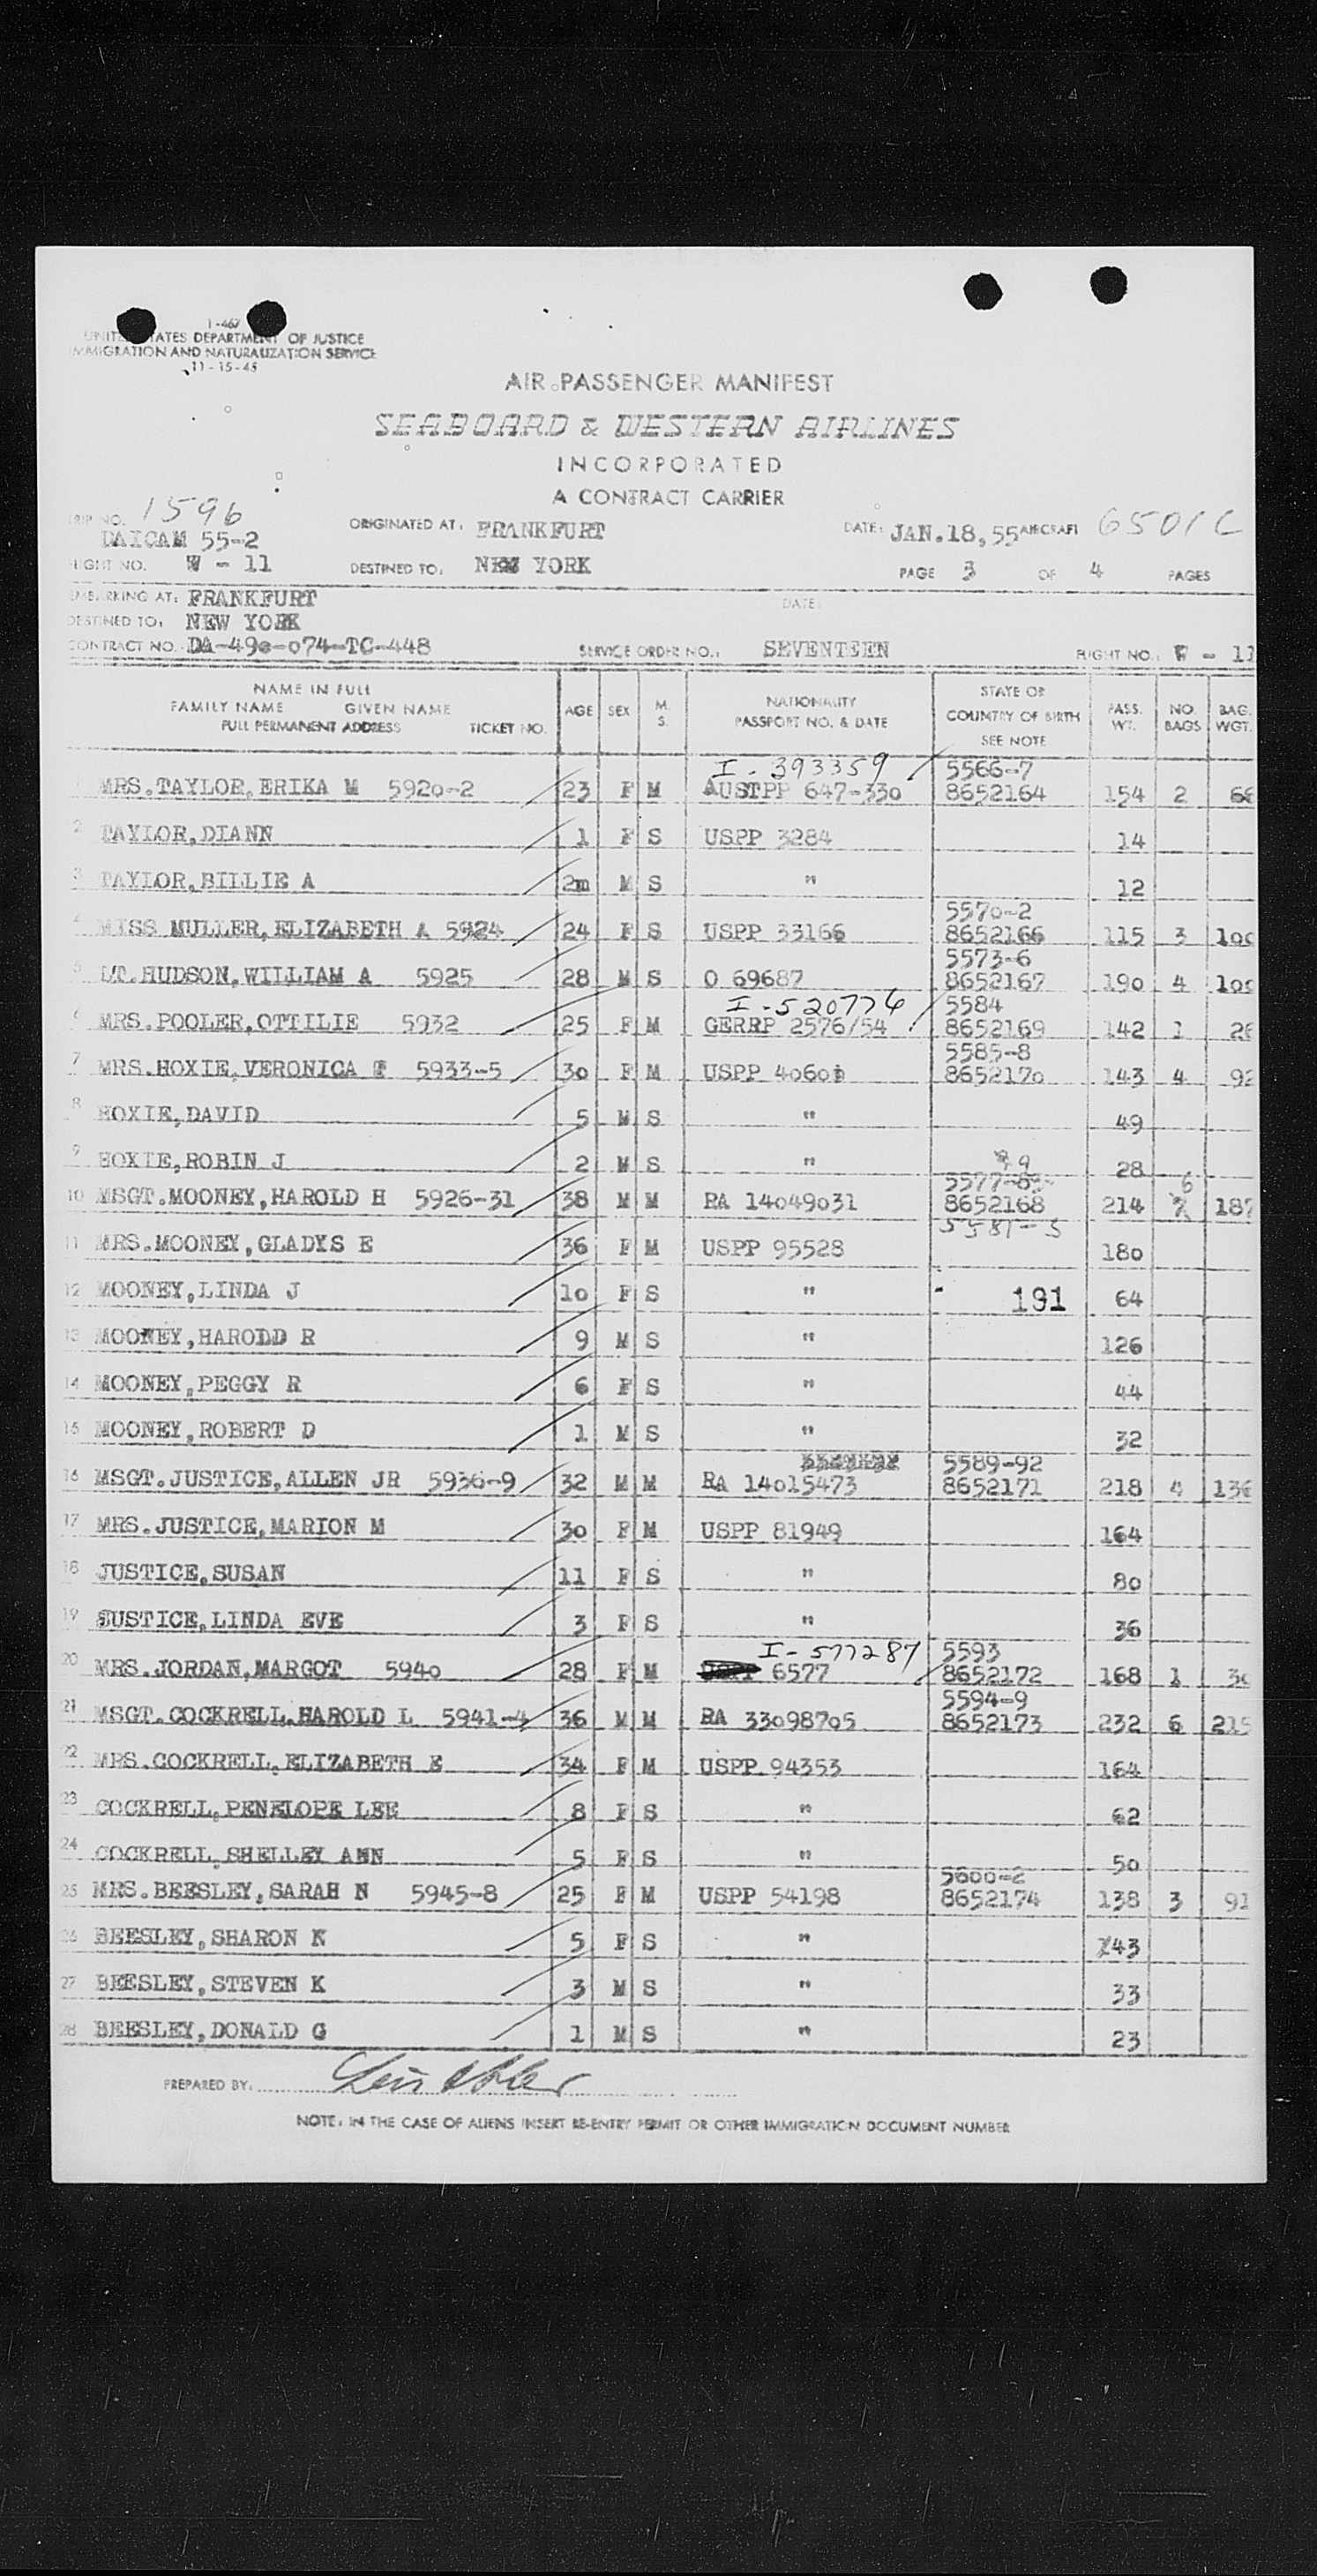 I-467
UNITED STATES DEPARTMENT OF JUSTICE
IMMIGRATION AND NATURALIZATION SERVICE
11-15-45
AIR PASSENGER MANIFEST
SEABOARD & WESTERN AIRLINES
INCORPORATED
A CONTRACT CARRIER
TRIP NO. 1596 ORIGINATED AT: FRANKFURT DATE: JAN.18,55 AIRCRAFT 6501C
DAICAM 55-2
FLIGHT NO. W - 11 DESTINED TO: NEW YORK PAGE 3 OF 4 PAGES
EMBARKING AT: FRANKFURT DATE:
DESTINED TO: NEW YORK
CONTRACT NO. DA-49e-o74-TC-448 SERVICE ORDER NO.: SEVENTEEN FLIGHT NO.: W - 11
NAME IN FULL
FAMILY NAME GIVEN NAME
FULL PERMANENT ADDRESS TICKET NO. AGE SEX M. S. NATIONALITY PASSPORT NO. & DATE STATE OR COUNTRY OF BIRTH SEE NOTE PASS. WT. NO. BAGS BAG. WGT.
I-393359 5566-7
1 MRS.TAYLOR,ERIKA M 592o-2 23 F M AUSTPP 647-33o 8652164 154 2 66
2 TAYLOR,DIANN 1 F S USPP 3284 14
3 TAYLOR,BILLIE A 2m M S " 12
5570-2
4 MISS MULLER,ELIZABETH A 5924 24 F S USPP 33166 8652166 115 3 100
5573-6
5 LT.HUDSON,WILLIAM A 5925 28 M S O 69687 8652167 19o 4 100
I-520776 5584
6 MRS.POOLER,OTTILIE 5932 25 F M GERRP 2576/54 8652169 142 1 26
5585-8
7 MRS.HOXIE,VERONICA T 5933-5 3o F M USPP 4o6o1 865217o 143 4 92
8 HOXIE,DAVID 5 M S " 49
9 HOXIE,ROBIN J 2 M S " 28
5577-83 6
10 MSGT.MOONEY,HAROLD H 5926-31 38 M M RA 14o49o31 8652168 214 7 187
5581-5
11 MRS.MOONEY,GLADYS E 36 F M USPP 95528 18o
12 MOONEY,LINDA J 1o F S " 191 64
13 MOONEY,HARODD R 9 M S " 126
14 MOONEY,PEGGY R 6 F S " 44
15 MOONEY,ROBERT D 1 M S " 32
5589-92
16 MSGT.JUSTICE,ALLEN JR 5936-9 32 M M RA 14o15473 8652171 218 4 136
17 MRS.JUSTICE,MARION M 3o F M USPP 81949 164
18 JUSTICE,SUSAN 11 F S " 8o
19 JUSTICE,LINDA EVE 3 F S " 36
I-577287 5593
20 MRS.JORDAN,MARGOT 594o 28 F M 6577 8652172 168 1 30
5594-9
21 MSGT.COCKRELL,HAROLD L 5941-4 36 M M RA 33o987o5 8652173 232 6 215
22 MRS.COCKRELL,ELIZABETH E 34 F M USPP 94353 164
23 COCKRELL,PENELOPE LEE 8 F S " 62
24 COCKRELL,SHELLEY ANN 5 F S " 5o
5600-2
25 MRS.BEESLEY,SARAH N 5945-8 25 F M USPP 54198 8652174 138 3 91
26 BEESLEY,SHARON K 5 F S " 43
27 BEESLEY,STEVEN K 3 M S " 33
28 BEESLEY,DONALD G 1 M S " 23
PREPARED BY:
NOTE: IN THE CASE OF ALIENS INSERT RE-ENTRY PERMIT OR OTHER IMMIGRATION DOCUMENT NUMBER